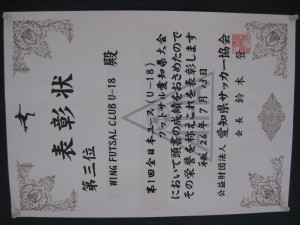 表彰状
第三位
WING FUTSAL CLUB U-18 殿
第1回全日本ユース(U-18)
フットサル愛知県大会
において頭書の成績をおさめたので
その栄誉を称えこれを表彰します
平成26年7月13日
公益財団法人 愛知県サッカー協会
会長 鈴木